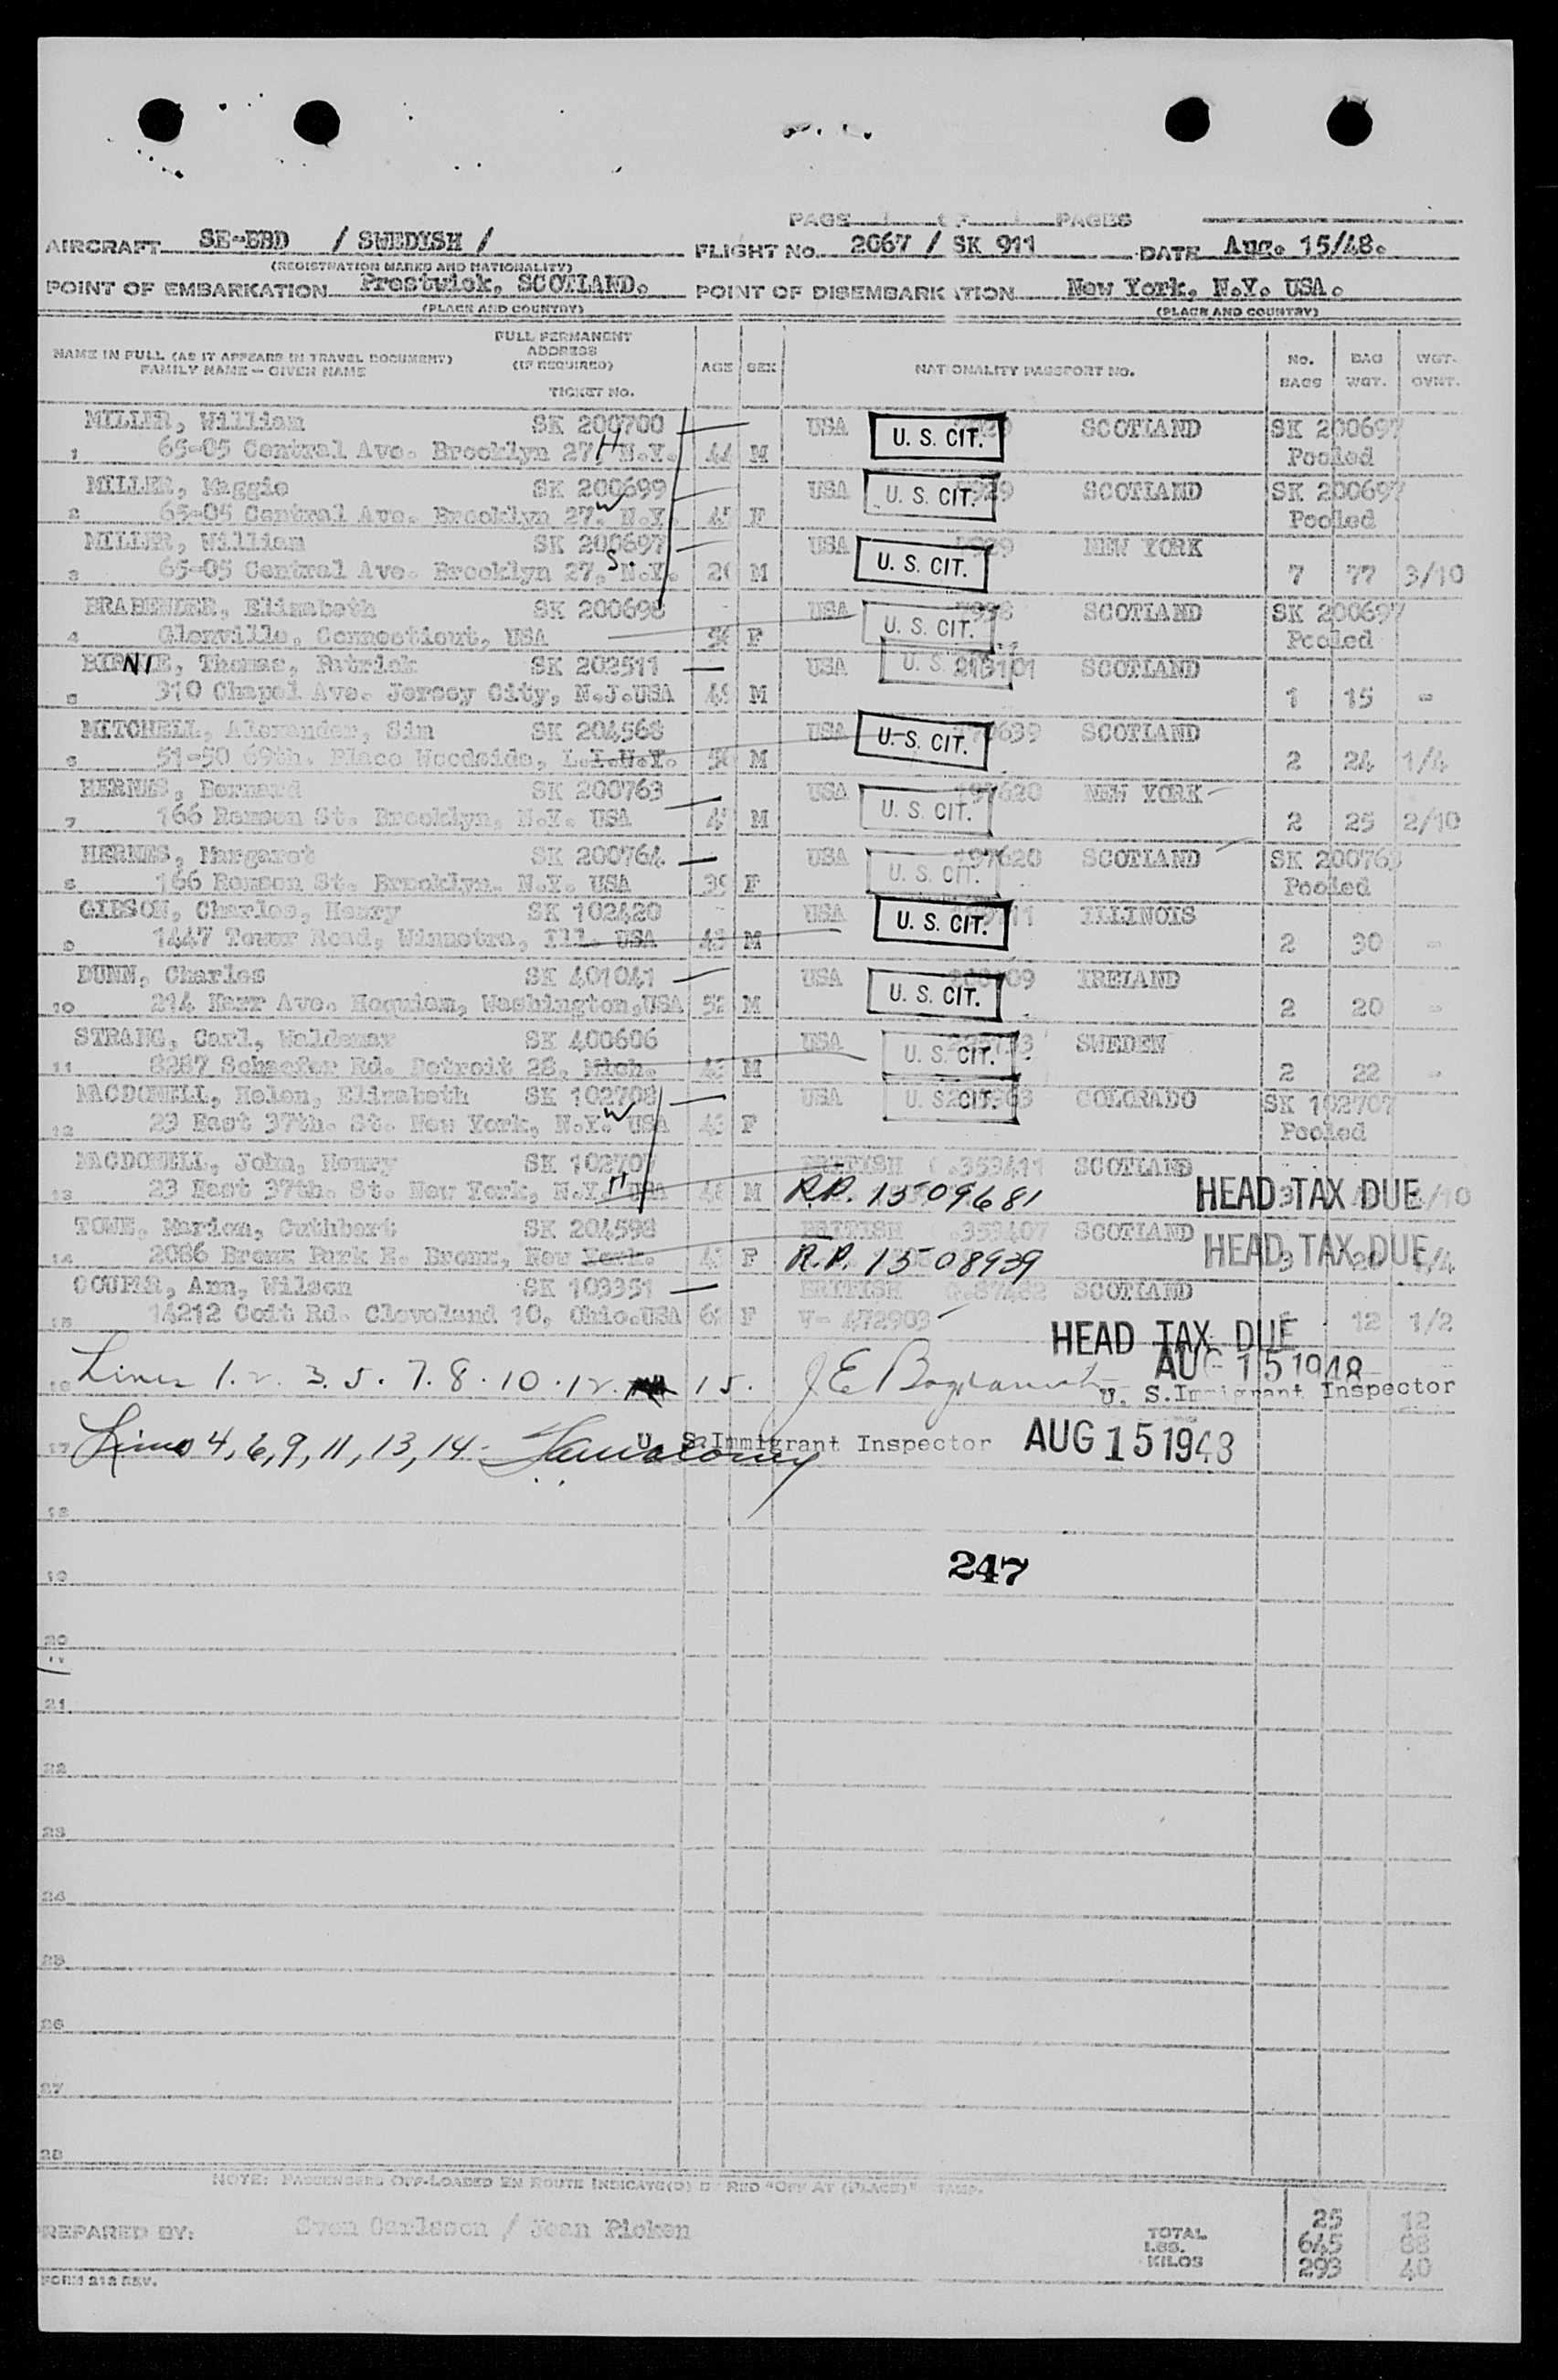 PAGE 1 OF 1 PAGES
AIRCRAFT SE-BBD / SWEDISH / FLIGHT No. 2067 / SK 911 DATE Aug. 15/48.
(REGISTRATION MARKS AND NATIONALITY)
POINT OF EMBARKATION Prestwick, SCOTLAND. POINT OF DISEMBARKATION New York, N.Y. USA.
(PLACE AND COUNTRY) (PLACE AND COUNTRY)
NAME IN FULL (AS IT APPEARS IN TRAVEL DOCUMENT) FAMILY NAME — GIVEN NAME FULL PERMANENT ADDRESS (IF REQUIRED) TICKET NO. AGE SEX NATIONALITY PASSPORT NO. No. BAGS BAG WGT. WGT. OVWT.
MILLER, William SK 200700 USA U. S. CIT. SCOTLAND SK 200697
1 65-05 Central Ave. Brooklyn 27, N.Y. H 44 M Pooled
MILLER, Maggie SK 200699 USA U. S. CIT. SCOTLAND SK 200697
2 65-05 Central Ave. Brooklyn 27, N.Y. W F Pooled
MILLER, William SK 200697 USA U. S. CIT. NEW YORK
3 65-05 Central Ave. Brooklyn 27, N.Y. S. M 7 77 3/10
BRABENDER, Elizabeth SK 200698 USA U. S. CIT. SCOTLAND SK 200697
4 Glenville, Connecticut, USA F Pooled
BIRNIE, Thomas, Patrick SK 202511 USA U. S. 213101 SCOTLAND
5 310 Chapel Ave. Jersey City, N.J.USA M 1 15 -
MITCHELL, Alexander, Sim SK 204568 USA U. S. CIT. SCOTLAND
6 51-50 69th. Place Woodside, L.I.N.Y. M 2 24 1/4
HERNES, Bernard SK 200763 USA U. S. CIT. 197620 NEW YORK
7 166 Remsen St. Brooklyn, N.Y. USA M 2 25 2/10
HERNES, Margaret SK 200764 USA U. S. CIT. 197620 SCOTLAND SK 200763
8 166 Remsen St. Brooklyn. N.Y. USA 39 F Pooled
GIBSON, Charles, Henry SK 102420 USA U. S. CIT. ILLINOIS
9 1447 Tower Road, Winnetra, Ill. USA M 2 30 -
DUNN, Charles SK 401041 USA U. S. CIT. IRELAND
10 214 Karr Ave. Hoquiam, Washington,USA 52 M 2 20 -
STRANG, Carl, Waldemar SK 400606 USA U. S. CIT. SWEDEN
11 8287 Schaefer Rd. Detroit 28, Mich. M 2 22 -
MACDONELL, Helen, Elizabeth SK 102708 USA U. S. CIT. COLORADO SK 102707
12 23 East 37th. St. New York, N.Y. USA W F Pooled
MACDONELL, John, Henry SK 102707 BRITISH 353411 SCOTLAND
13 23 East 37th. St. New York, N.Y. USA H M R.P. 1509681 HEAD TAX DUE
TOWE, Marion, Cuthbert SK 204598 BRITISH 353407 SCOTLAND
14 2086 Bronx Park E. Bronx, New York. F R.P. 1508939 HEAD TAX DUE
COUPER, Ann, Wilson SK 103351 BRITISH SCOTLAND
15 14212 Coit Rd. Cleveland 10, Ohio.USA F V- 472903 12 1/2
HEAD TAX DUE
AUG 15 1948
16 Lines 1. 2. 3. 5. 7. 8. 10. 12. 15.
U. S. Immigrant Inspector
17 Lines 4, 6, 9, 11, 13, 14 - U. S. Immigrant Inspector AUG 15 1948
18
247
19
20
21
22
23
24
25
26
27
28
NOTE: PASSENGERS OFF-LOADED EN ROUTE INDICATE(D) BY RED "OFF AT (PLACE)" STAMP.
PREPARED BY: Sven Carlsson / Jean Picken
TOTAL 25 12
LBS. 645 88
KILOS 293 40
FORM 212 REV.